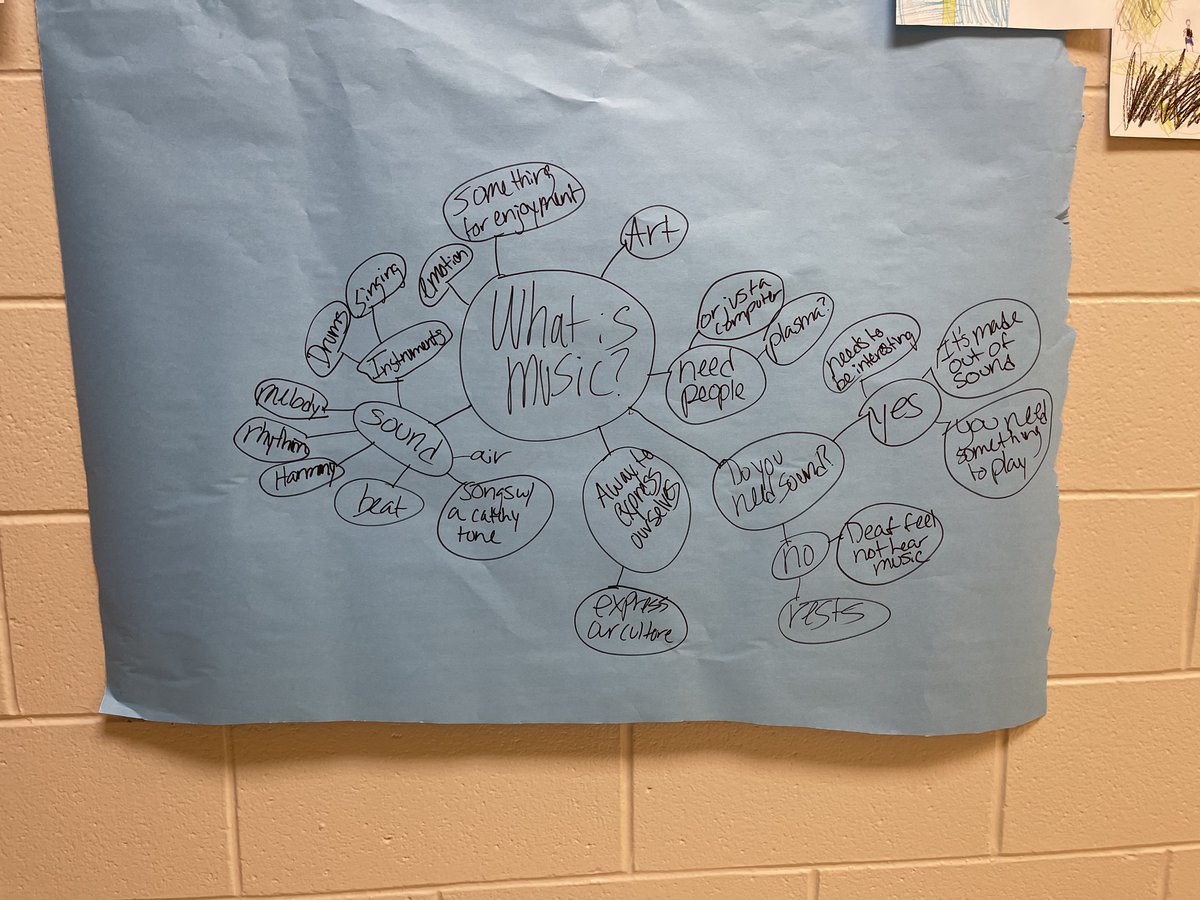 something
for enjoyment
Art
emotion
Singing
Drums
Instruments
What is
music?
or just a
computer
plasma?
need
people
needs to
be interesting
It's made
out of
sound
yes
you need
something
to play
melody
rhythm
Harmony
sound
beat
air
songs w/
a catchy
tone
A way to
express
ourselves
express
our culture
Do you
need sound?
no
Deaf feel
not hear
music
rests